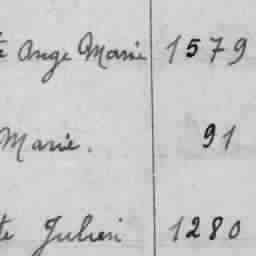 te Ange Marie 1579
Marie. 91
te Julien 1280